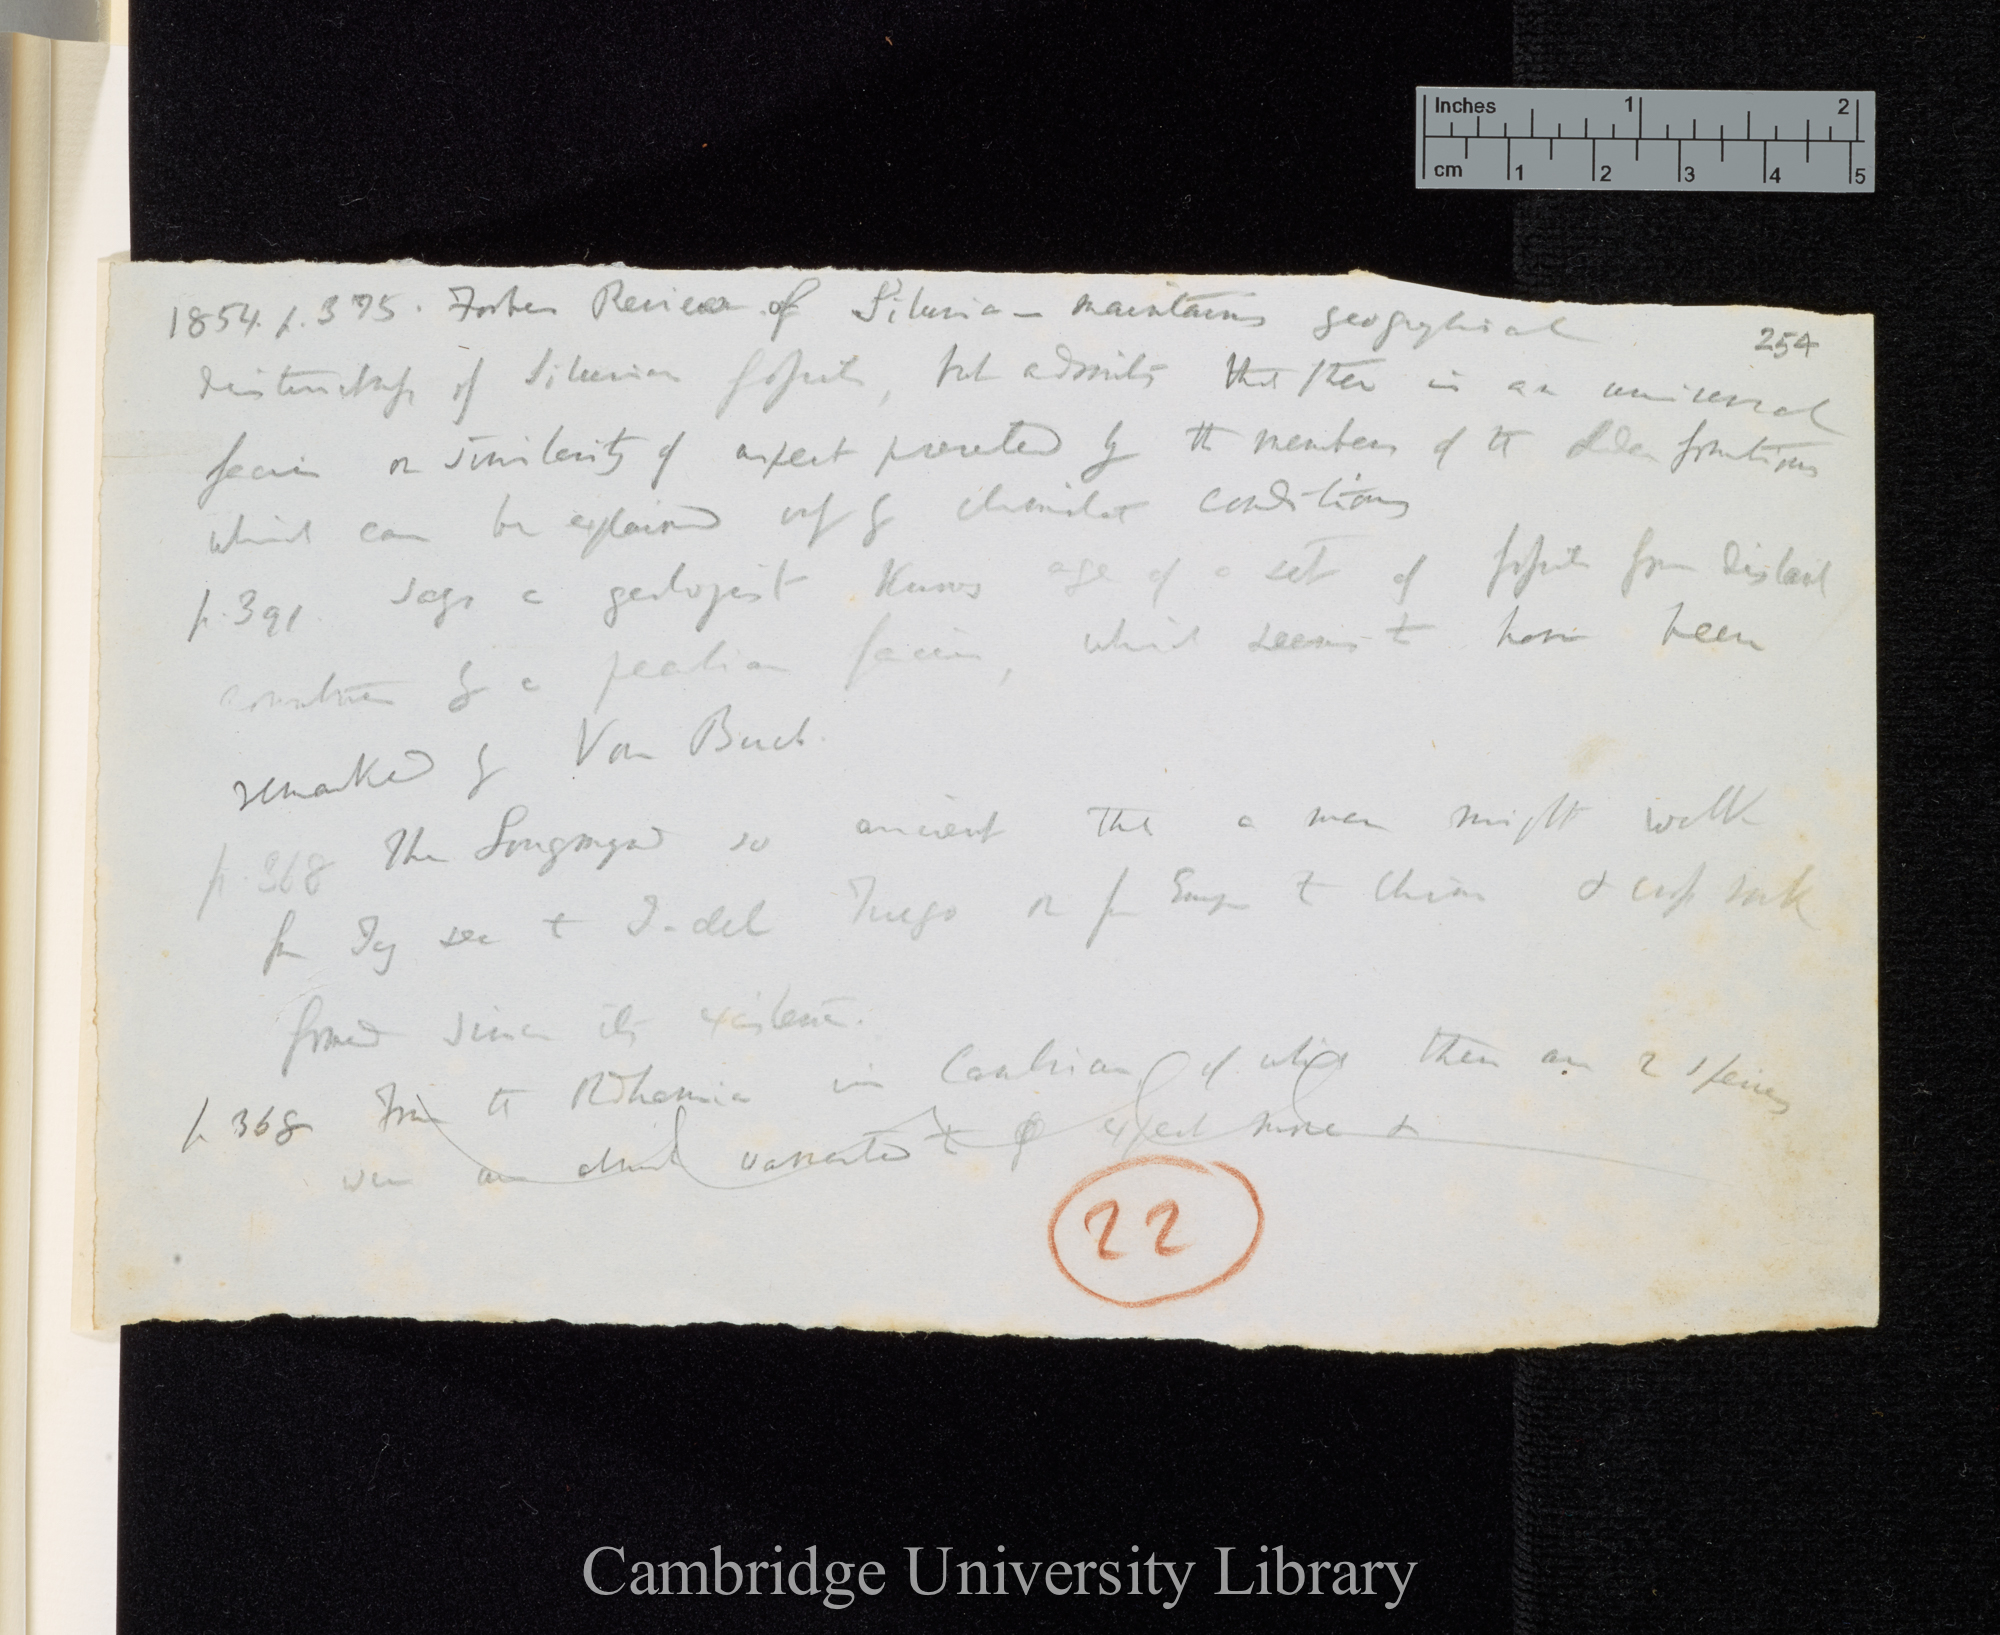 1854. p. 375. Forbes Review of Siluria — maintains geographical
254
distinctness of Silurian fossils, but admits that there is an universal
facies or similarity of aspect presented by the members of the older formations
which can be explained only by climatal conditions
p. 391. says a geologist knows age of a set of fossils from distant
countries by a peculiar facies, which seems to have been
remarked by Von Buch.
p. 368 The Longmynd so ancient that a man might walk
from Icy sea to T. del Fuego or from Europe to China & only rock
formed since its existence.
p 368 From the Bohemia in Cambrian, of which there are 2 species
were and to expect more &
22
Inches 1 2
cm 1 2 3 4 5
Cambridge University Library